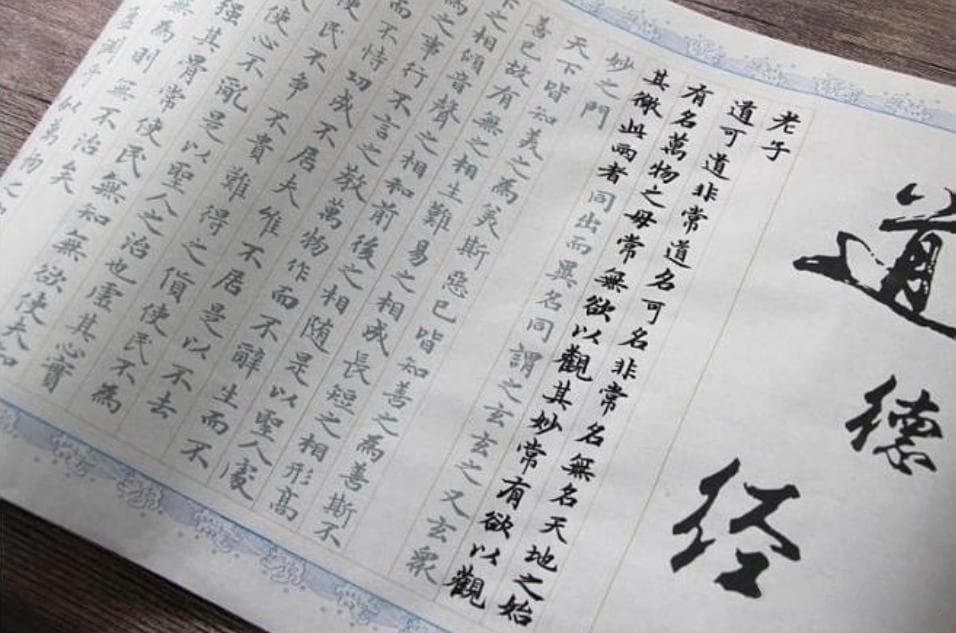 道德经
老子
道可道非常道名可名非常名無名天地之始
有名萬物之母常無欲以觀其妙常有欲以觀
其徼此兩者同出而異名同謂之玄玄之又玄衆
妙之門
天下皆知美之為美斯惡已皆知善之為善斯不
善已故有無之相生難易之相成長短之相形高
下之相傾音聲之相和前後之相随是以聖人處
為之事行不言之教萬物作而不辭生而不
而不恃功成不居夫惟不居是以不去
使民不争不貴難得之貨使民不為
使心不亂是以聖人之治也虛其心實
强其骨常使民無知無欲使夫知
無為則無不治矣
淵乎似萬物之